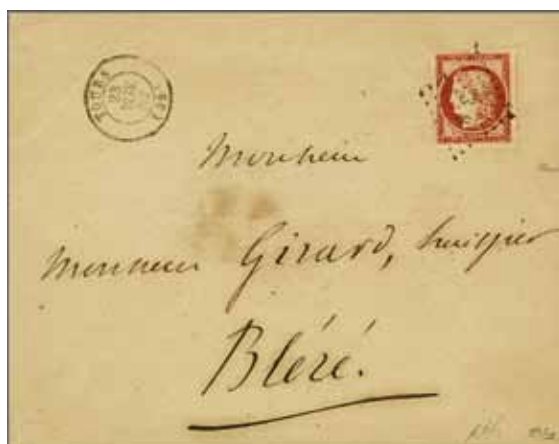 TOURS (36)
23
Monsieur
Monsieur Girard, huissier
Bléré.